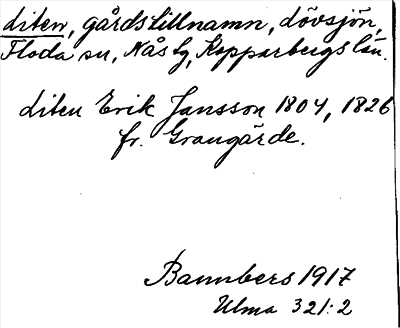 diten, gårdstillnamn, Lövsjön,
Floda sn, Nås tg, Kopparbergs län.
diten Erik Jansson 1804, 1826
fr. Grangärde.
Bannbers 1917
Ulma 321:2